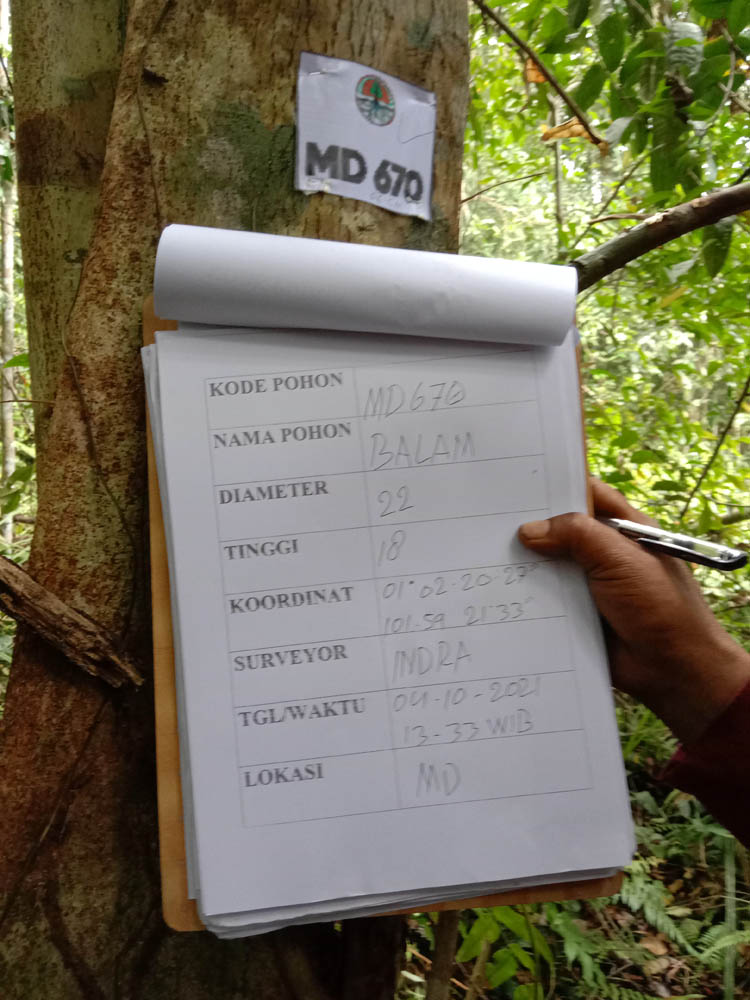 MD 670
KODE POHON MD670
NAMA POHON BALAM
DIAMETER 22
TINGGI 18
KOORDINAT 01° 02-20-27"
101-59 21'33"
SURVEYOR INDRA
TGL/WAKTU 04-10-2021
13-33 WIB
LOKASI MD